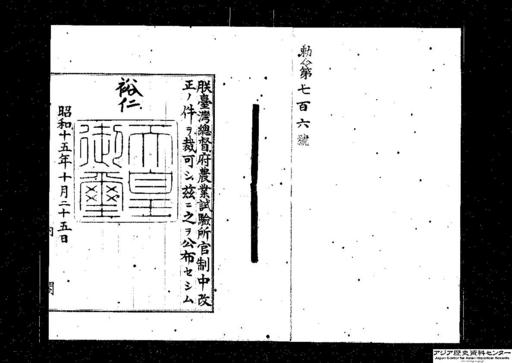 勅令第七百六號
朕臺灣總督府農業試驗所官制中改
正ノ件ヲ裁可シ茲ニ之ヲ公布セシム
裕仁
天皇
御璽
昭和十五年十月二十五日
内閣
アジア歴史資料センター
Japan Center for Asian Historical Records